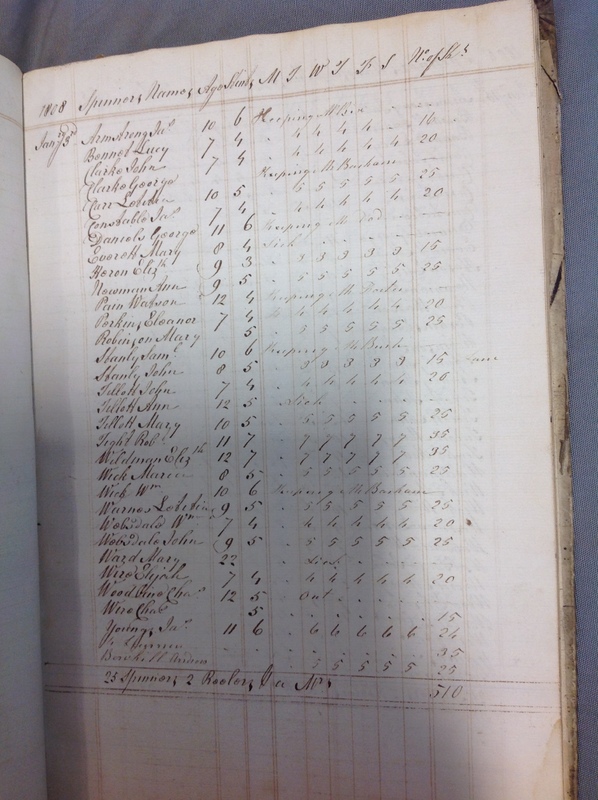 1808 Spinners Names Age Stint M T W T F S No. of Sks
Jany 3rd Armstrong Jas 10 6 Keeping - -
Bonnet Lucy 7 4 . 4 4 4 4 . 16
Clarke John 7 4 . 4 4 4 4 4 20
Clarke George Keeping Mr Barham —
Carr Lotitia 10 5 . 5 5 5 5 5 25
Constable Jas 7 4 . 4 4 4 4 4 20
Daniels George 11 6 Keeping Mr —
Everett Mary 8 4 Sick . . . . —
Heron Elizth 9 3 . 3 3 3 3 3 15
Newman Ann 9 5 . 5 5 5 5 5 25
Pain Watson 12 4 Keeping Mr —
Perkins Eleanor 7 4 . 4 4 4 4 4 20
Robinson Mary 5 . 5 5 5 5 5 25
Stanly Saml 10 6 Keeping Mr —
Stanly John 8 5 . 3 3 3 3 3 15
Tillett John 7 4 . 4 4 4 4 4 20
Tillett Ann 12 5 . Sick . . . .
Tillett Mary 10 5 . 5 5 5 5 5 25
Tight Robt 11 7 . 7 7 7 7 7 35
Wildman Elizth 12 7 . 7 7 7 7 7 35
Wick Maria 8 5 . 5 5 5 5 5 25
Wick Wm 10 6 Keeping Mr Barham —
Warnes Lotitia 9 5 . 5 5 5 5 5 25
Websdale Wm 7 4 . 4 4 4 4 4 20
Websdale John 9 5 . 5 5 5 5 5 25
Ward Mary 22 . Sick . . .
Wire Elijah 7 4 . 4 4 4 4 4 20
Chas 12 5 . Out . . .
Wire Chas 5 . . . . . . 15
Young Jas 11 6 . 6 6 6 6 6 24
. . . . . . 35
Adam 5 5 5 5 5 25
25 Spinners 2 Reelers 510